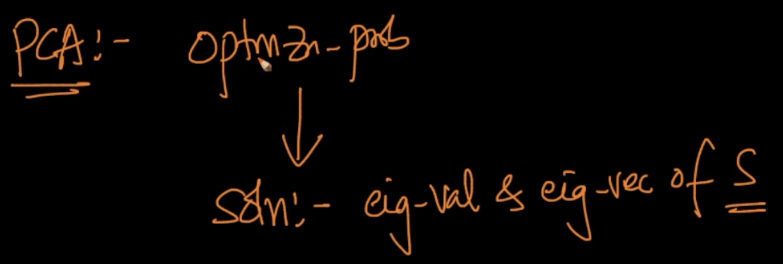 PCA:- optmzn-prob
Soln:- eig-val & eig-vec of S